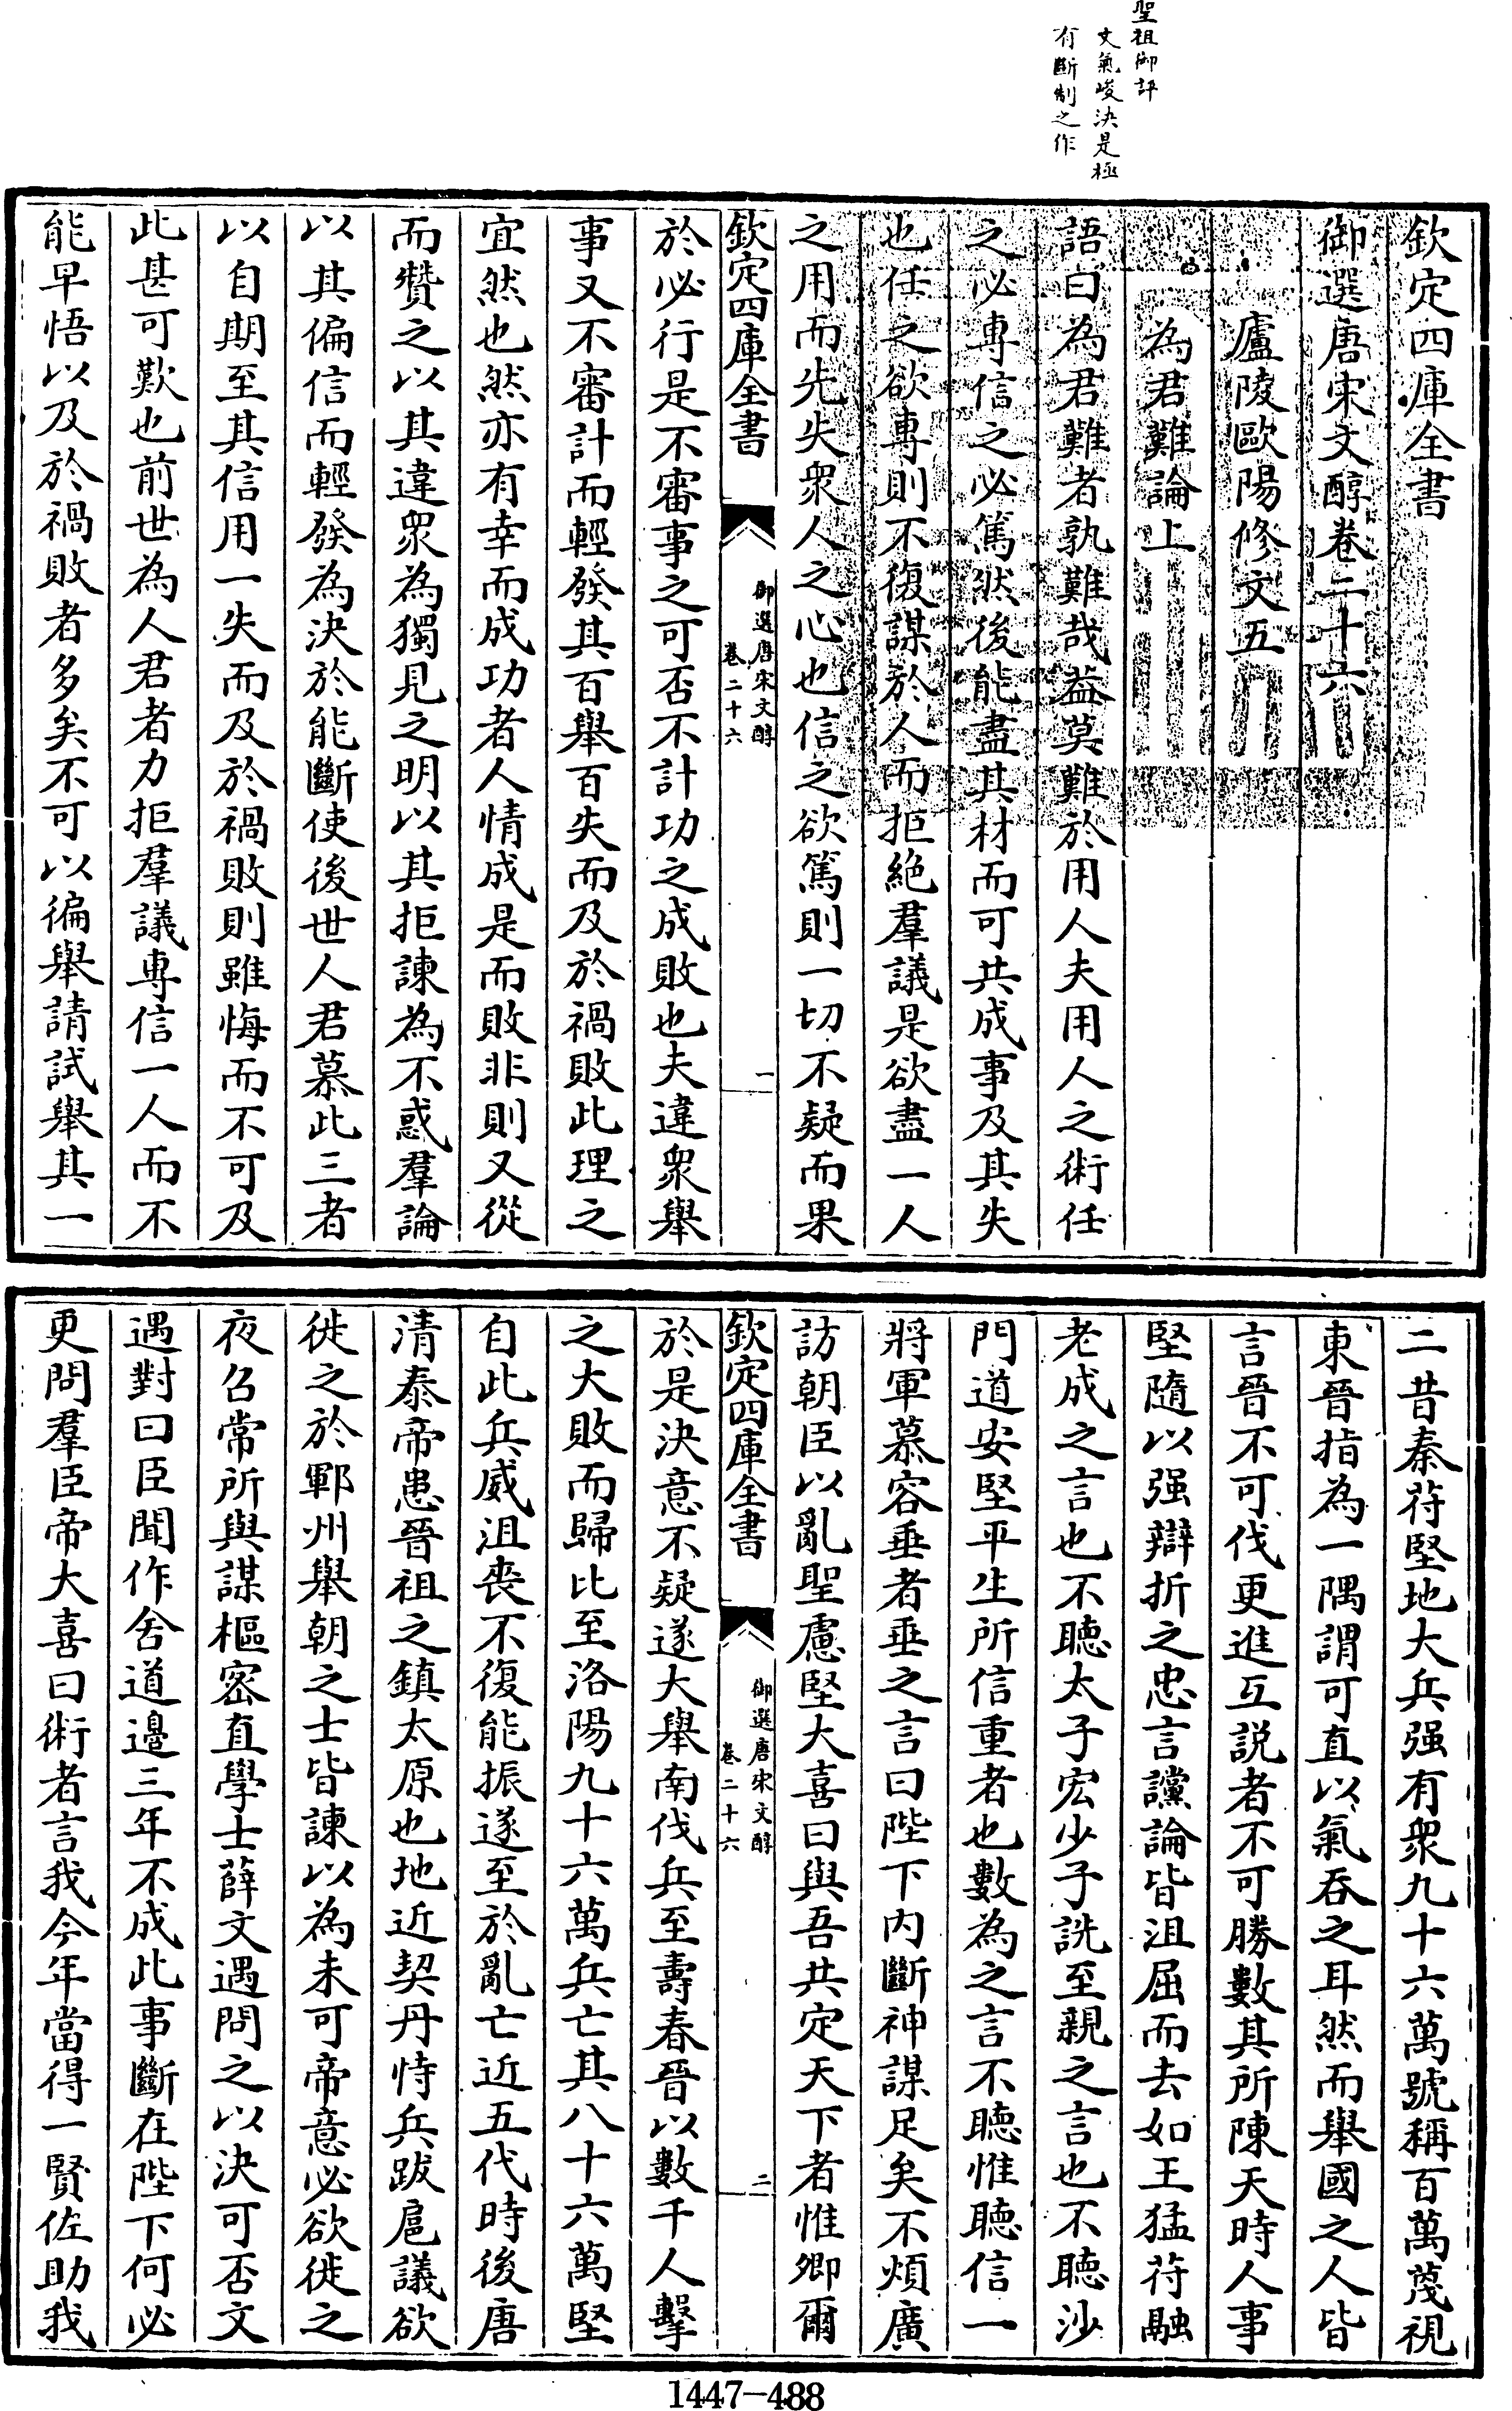 聖祖御評
文氣峻決是極
有斷制之作
欽定四庫全書
御選唐宋文醇卷二十六
廬陵歐陽修文五
為君難論上
語曰為君難者孰難哉益莫難於用人夫用人之術任
之必專信之必篤然後能盡其材而可共成事及其失
也任之欲專則不復謀於人而拒絶羣議是欲盡一人
之用而先失衆人之心也信之欲篤則一切不疑而果
欽定四庫全書
御選唐宋文醇
卷二十六
一
於必行是不審事之可否不計功之成敗也夫違衆舉
事又不審計而輕發其百舉百失而及於禍敗此理之
宜然也然亦有幸而成功者人情成是而敗非則又從
而贊之以其違衆為獨見之明以其拒諫為不惑羣論
以其偏信而輕發為決於能斷使後世人君慕此三者
以自期至其信用一失而及於禍敗則雖悔而不可及
此甚可歎也前世為人君者力拒羣議專信一人而不
能早悟以及於禍敗者多矣不可以徧舉請試舉其一
二昔秦苻堅地大兵强有衆九十六萬號稱百萬蔑視
東晉指為一隅謂可直以氣吞之耳然而舉國之人皆
言晉不可伐更進互説者不可勝數其所陳天時人事
堅隨以强辯折之忠言讜論皆沮屈而去如王猛苻融
老成之言也不聽太子宏少子詵至親之言也不聽沙
門道安堅平生所信重者也數為之言不聽惟聽信一
將軍慕容垂者垂之言曰陛下内斷神謀足矣不煩廣
訪朝臣以亂聖慮堅大喜曰與吾共定天下者惟卿爾
欽定四庫全書
御選唐宋文醇
卷二十六
二
於是決意不疑遂大舉南伐兵至壽春晉以數千人擊
之大敗而歸比至洛陽九十六萬兵亡其八十六萬堅
自此兵威沮喪不復能振遂至於亂亡近五代時後唐
清泰帝患晉祖之鎮太原也地近契丹恃兵跋扈議欲
徙之於鄆州舉朝之士皆諫以為未可帝意必欲徙之
夜召常所與謀樞密直學士薛文遇問之以決可否文
遇對曰臣聞作舍道邉三年不成此事斷在陛下何必
更問羣臣帝大喜曰術者言我今年當得一賢佐助我
1447-488